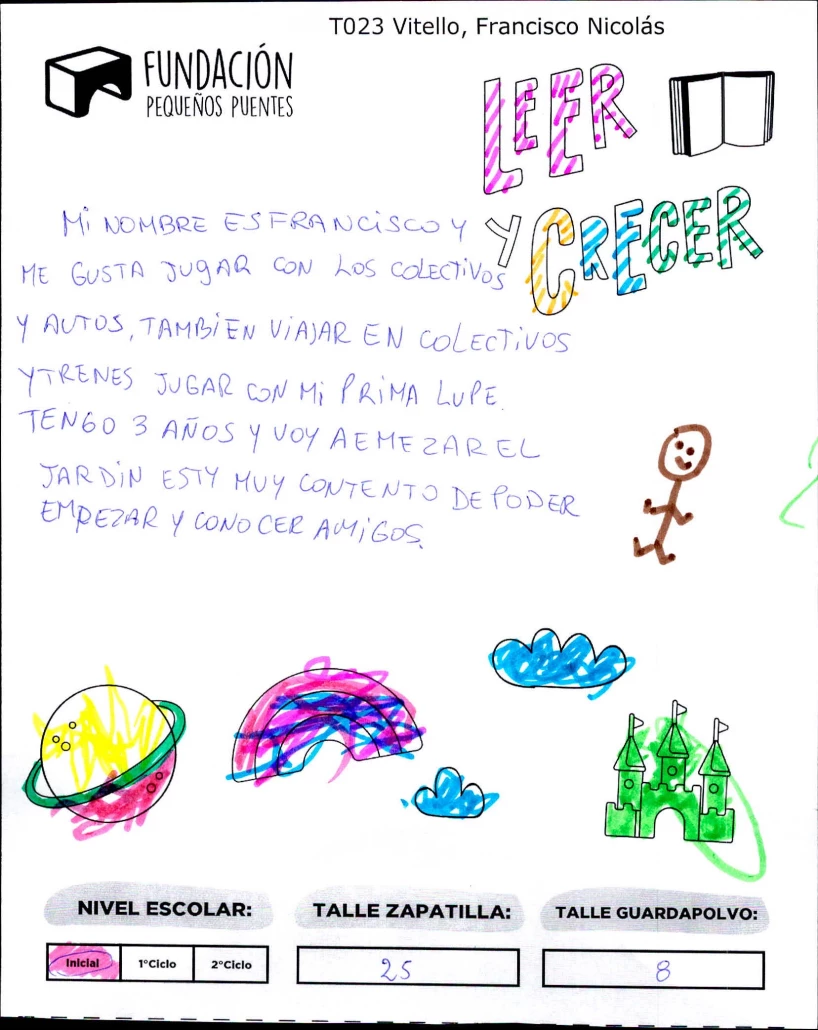 T023 Vitello, Francisco Nicolás
FUNDACIÓN
PEQUEÑOS PUENTES
LEER
Y CRECER
Mi NOMBRE ES FRANCISCO Y
ME GUSTA JUGAR CON LOS COLECTIVOS
Y AUTOS, TAMBIEN VIAJAR EN COLECTIVOS
Y TRENES JUGAR CON Mi PRIMA LUPE.
TENGO 3 AÑOS Y VOY A EMEZAR EL
JARDIN ESTY MUY CONTENTO DE PODER
EMPEZAR Y CONOCER AMIGOS.
NIVEL ESCOLAR: TALLE ZAPATILLA: TALLE GUARDAPOLVO:
Inicial 1°Ciclo 2°Ciclo 25 8